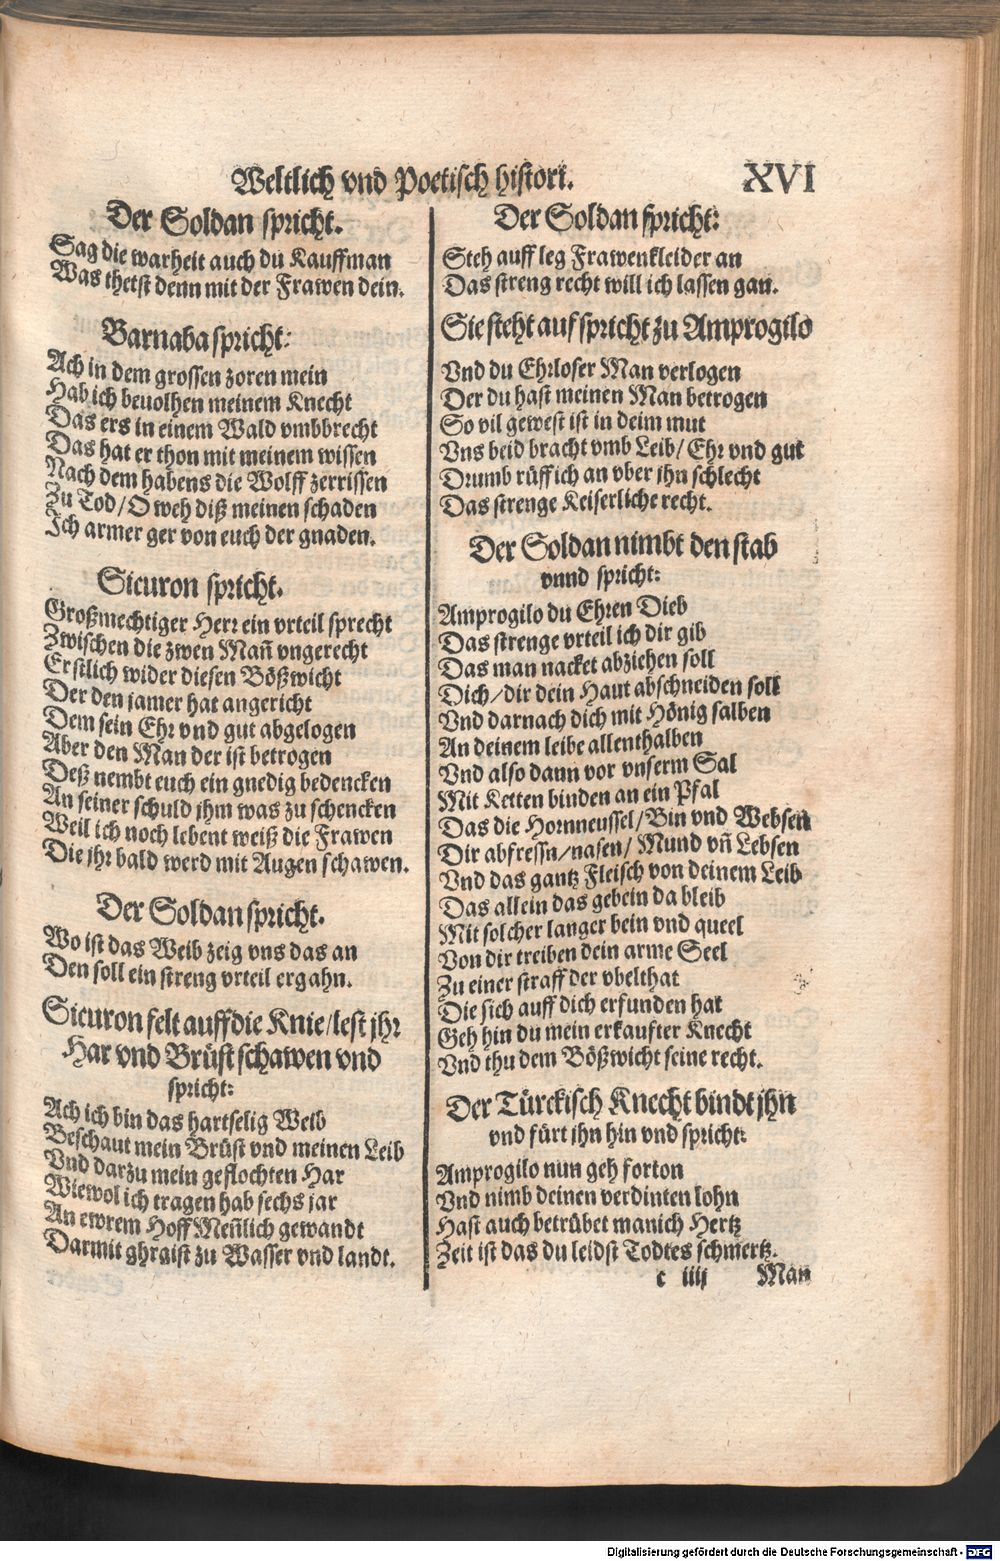 Weltlich vnd Poetisch histori. XVI
Der Soldan spricht.
Sag die warheit auch du Kauffman
Was thetst denn mit der Frawen dein.
Barnaba spricht:
Ach in dem grossen zoren mein
Hab ich beuolhen meinem Knecht
Das ers in einem Wald vmbbrecht
Das hat er thon mit meinem wissen
Nach dem habens die Wolff zerrissen
Zu Tod/O weh diß meinen schaden
Ich armer ger von euch der gnaden.
Sicuron spricht.
Großmechtiger Herr ein vrteil sprecht
Zwischen die zwen Mañ vngerecht
Erstlich wider diesen Bößwicht
Der den jamer hat angericht
Dem sein Ehr vnd gut abgelogen
Aber den Man der ist betrogen
Deß nembt euch ein gnedig bedencken
An seiner schuld jhm was zu schencken
Weil ich noch lebent weiß die Frawen
Die jhr bald werd mit Augen schawen.
Der Soldan spricht.
Wo ist das Weib zeig vns das an
Den soll ein streng vrteil ergahn.
Sicuron felt auff die Knie/lest jhr
Har vnd Brüst schawen vnd
spricht:
Ach ich bin das hartselig Weib
Beschaut mein Brüst vnd meinen Leib
Vnd darzu mein geflochten Har
Wiewol ich tragen hab sechs jar
An ewrem Hoff Meñlich gewandt
Darmit ghraist zu Wasser vnd landt.
Der Soldan spricht:
Steh auff leg Frawenkleider an
Das streng recht will ich lassen gan.
Sie steht auf spricht zu Amprogilo
Vnd du Ehrloser Man verlogen
Der du hast meinen Man betrogen
So vil gewest ist in deim mut
Vns beid bracht vmb Leib/Ehr vnd gut
Drumb rüff ich an vber jhn schlecht
Das strenge Keiserliche recht.
Der Soldan nimbt den stab
vnnd spricht:
Amprogilo du Ehren Dieb
Das strenge vrteil ich dir gib
Das man nacket abziehen soll
Dich/dir dein Haut abschneiden soll
Vnd darnach dich mit Hönig salben
An deinem leibe allenthalben
Vnd also dann vor vnserm Sal
Mit Ketten binden an ein Pfal
Das die Hornneussel/Bin vnd Websen
Dir abfressn/nasen/Mund vñ Lebsen
Vnd das gantz Fleisch von deinem Leib
Das allein das gebein da bleib
Mit solcher langer bein vnd queel
Von dir treiben dein arme Seel
Zu einer straff der vbelthat
Die sich auff dich erfunden hat
Geh hin du mein erkaufter Knecht
Vnd thu dem Bößwicht seine recht.
Der Türckisch Knecht bindt jhn
vnd fürt jhn hin vnd spricht:
Amprogilo nun geh forton
Vnd nimb deinen verdinten lohn
Hast auch betrübet manich Hertz
Zeit ist das du leidst Todtes schmertz.
c iiij Man
Digitalisierung gefördert durch die Deutsche Forschungsgemeinschaft - DFG